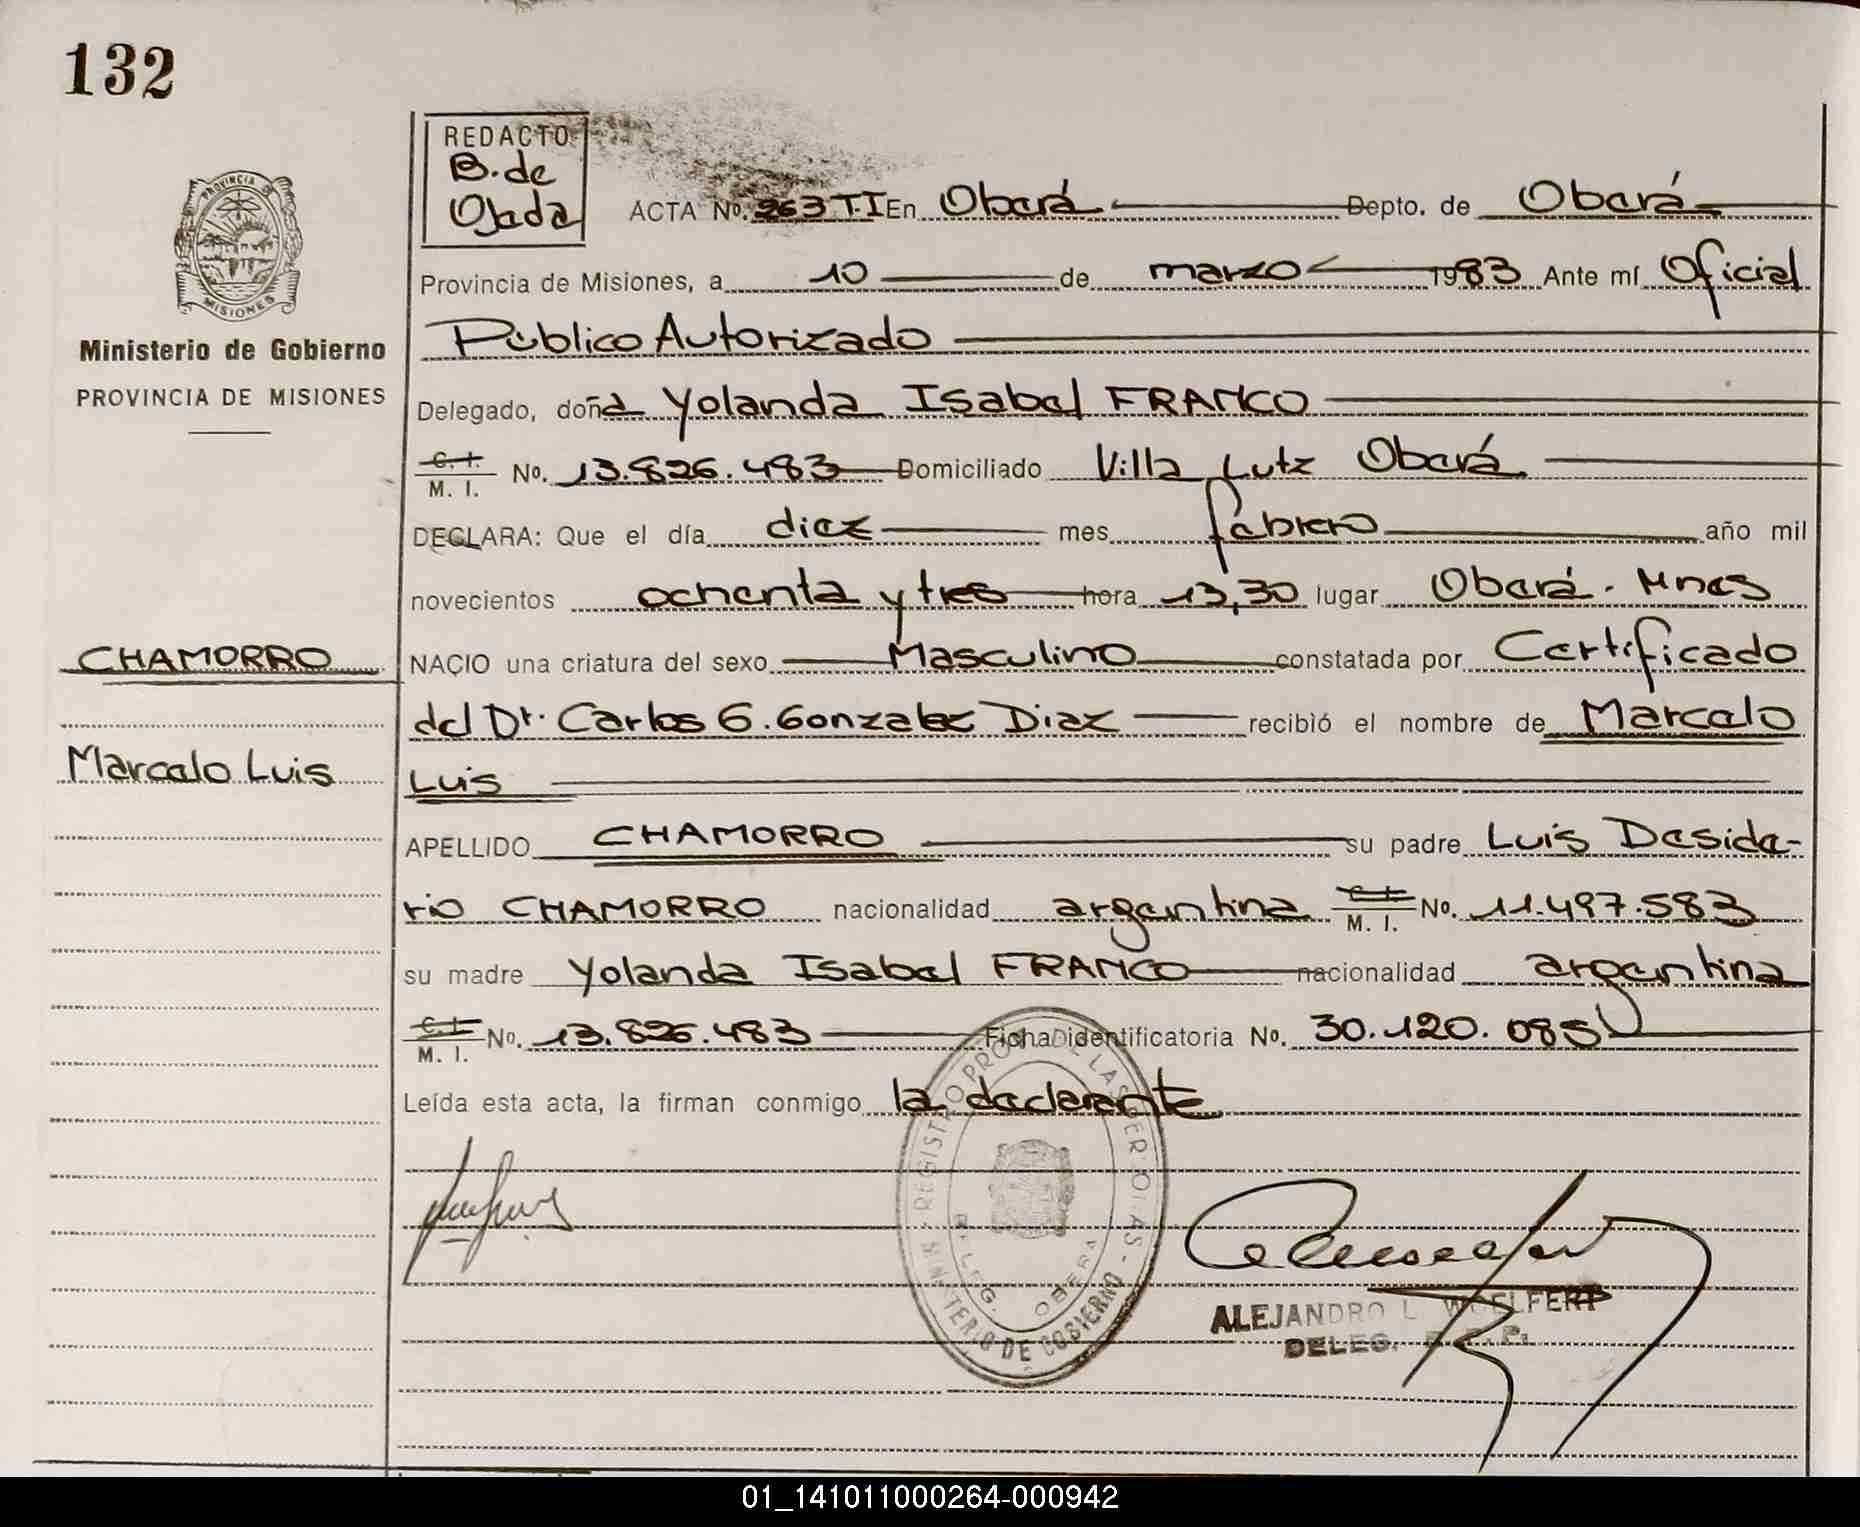 132
REDACTO
B. de
Ojeda
ACTA No. 263 T.I En Oberá Depto. de Oberá
PROVINCIA DE MISIONES
Provincia de Misiones, a 10 de marzo 1983 Ante mí Oficial
Público Autorizado
Ministerio de Gobierno
PROVINCIA DE MISIONES
Delegado, doña Yolanda Isabel FRANCO
C. I.
M. I. No. 13.826.483 Domiciliado Villa Lutz Oberá
DECLARA: Que el día diez mes febrero año mil
novecientos ochenta y tres hora 13,30 lugar Oberá. Mnes
CHAMORRO
NACIO una criatura del sexo Masculino constatada por Certificado
del Dr. Carlos G. Gonzalez Diaz recibió el nombre de Marcelo
Marcelo Luis
Luis
APELLIDO CHAMORRO su padre Luis Deside-
rio CHAMORRO nacionalidad argentina C. I. M. I. No. 11.497.583
su madre Yolanda Isabel FRANCO nacionalidad argentina
C. I.
M. I. No. 13.826.483 Ficha identificatoria No. 30.120.085
Leída esta acta, la firman conmigo la declarante
REGISTRO PROV. DE LAS PERSONAS - MINISTERIO DE GOBIERNO
DELEG. OBERA
ALEJANDRO L. WOELFERT
DELEG. R. P.
01_141011000264-000942